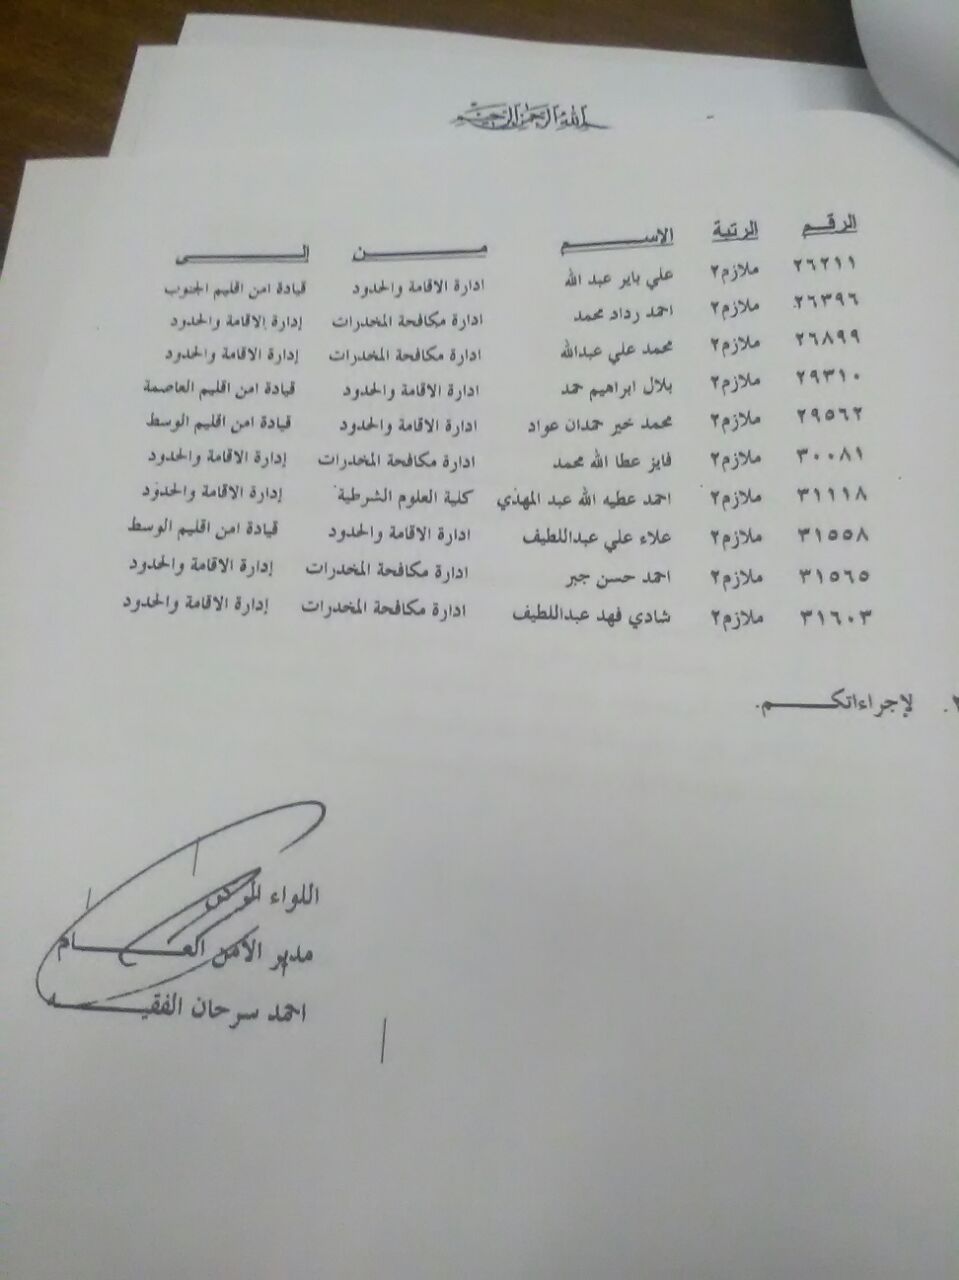 بسم الله الرحمن الرحيم
الرقم الرتبة الاسم من الى
٢٦٢١١ ملازم٢ علي باير عبد الله ادارة الاقامة والحدود قيادة امن اقليم الجنوب
٢٦٣٩٦ ملازم٢ احمد رداد محمد ادارة مكافحة المخدرات إدارة الاقامة والحدود
٢٦٨٩٩ ملازم٢ محمد علي عبدالله ادارة مكافحة المخدرات إدارة الاقامة والحدود
٢٩٣١٠ ملازم٢ بلال ابراهيم حمد ادارة الاقامة والحدود قيادة امن اقليم العاصمة
٢٩٥٦٢ ملازم٢ محمد خير حمدان عواد ادارة الاقامة والحدود قيادة امن اقليم الوسط
٣٠٠٨١ ملازم٢ فايز عطا الله محمد ادارة مكافحة المخدرات إدارة الاقامة والحدود
٣١١١٨ ملازم٢ احمد عطيه الله عبد المهدي كلية العلوم الشرطية إدارة الاقامة والحدود
٣١٥٥٨ ملازم٢ علاء علي عبداللطيف ادارة الاقامة والحدود قيادة امن اقليم الوسط
٣١٥٦٥ ملازم٢ احمد حسن جبر ادارة مكافحة المخدرات إدارة الاقامة والحدود
٣١٦٠٣ ملازم٢ شادي فهد عبداللطيف ادارة مكافحة المخدرات إدارة الاقامة والحدود
٢. لإجراءاتكم.
اللواء
مدير الأمن العام
احمد سرحان الفقيه